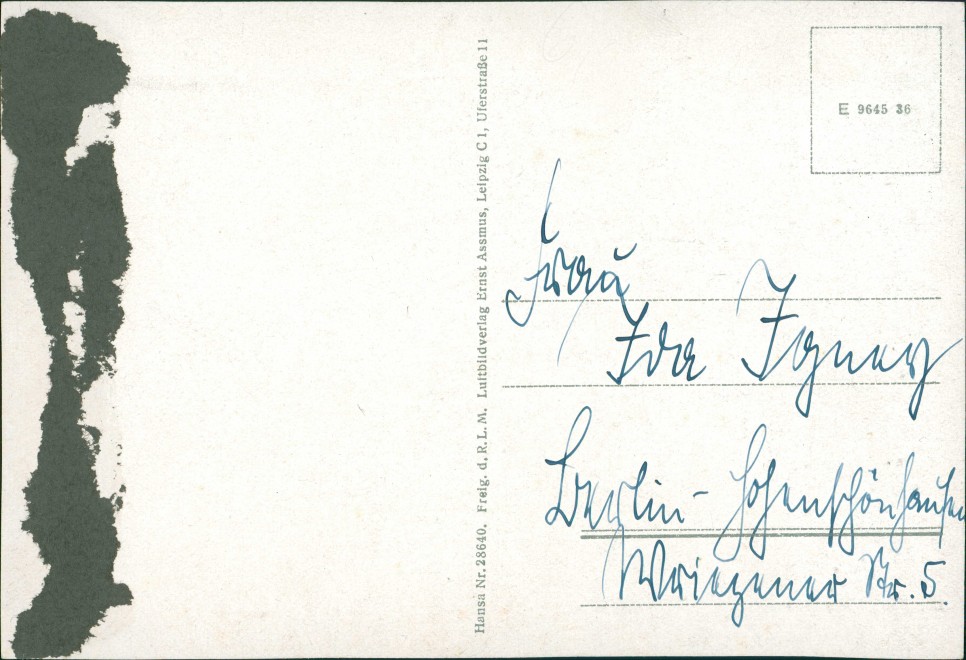 E 9645 36
Hansa Nr. 28640. Freig. d. R. L. M. Luftbildverlag Ernst Assmus, Leipzig C 1, Uferstraße 11
Frau
Ida
Berlin-Hohenschönhausen
Wriezener Str. 5.